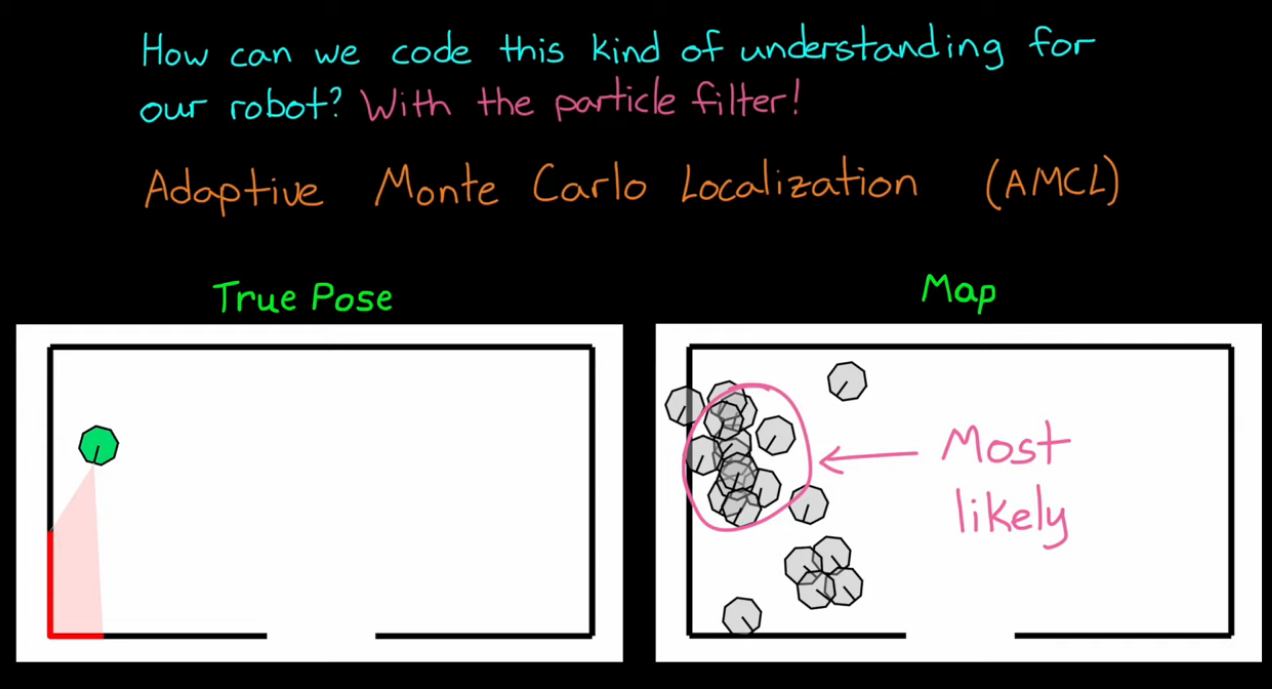 How can we code this kind of understanding for
our robot? With the particle filter!
Adaptive Monte Carlo Localization (AMCL)
True Pose
Map
Most
likely